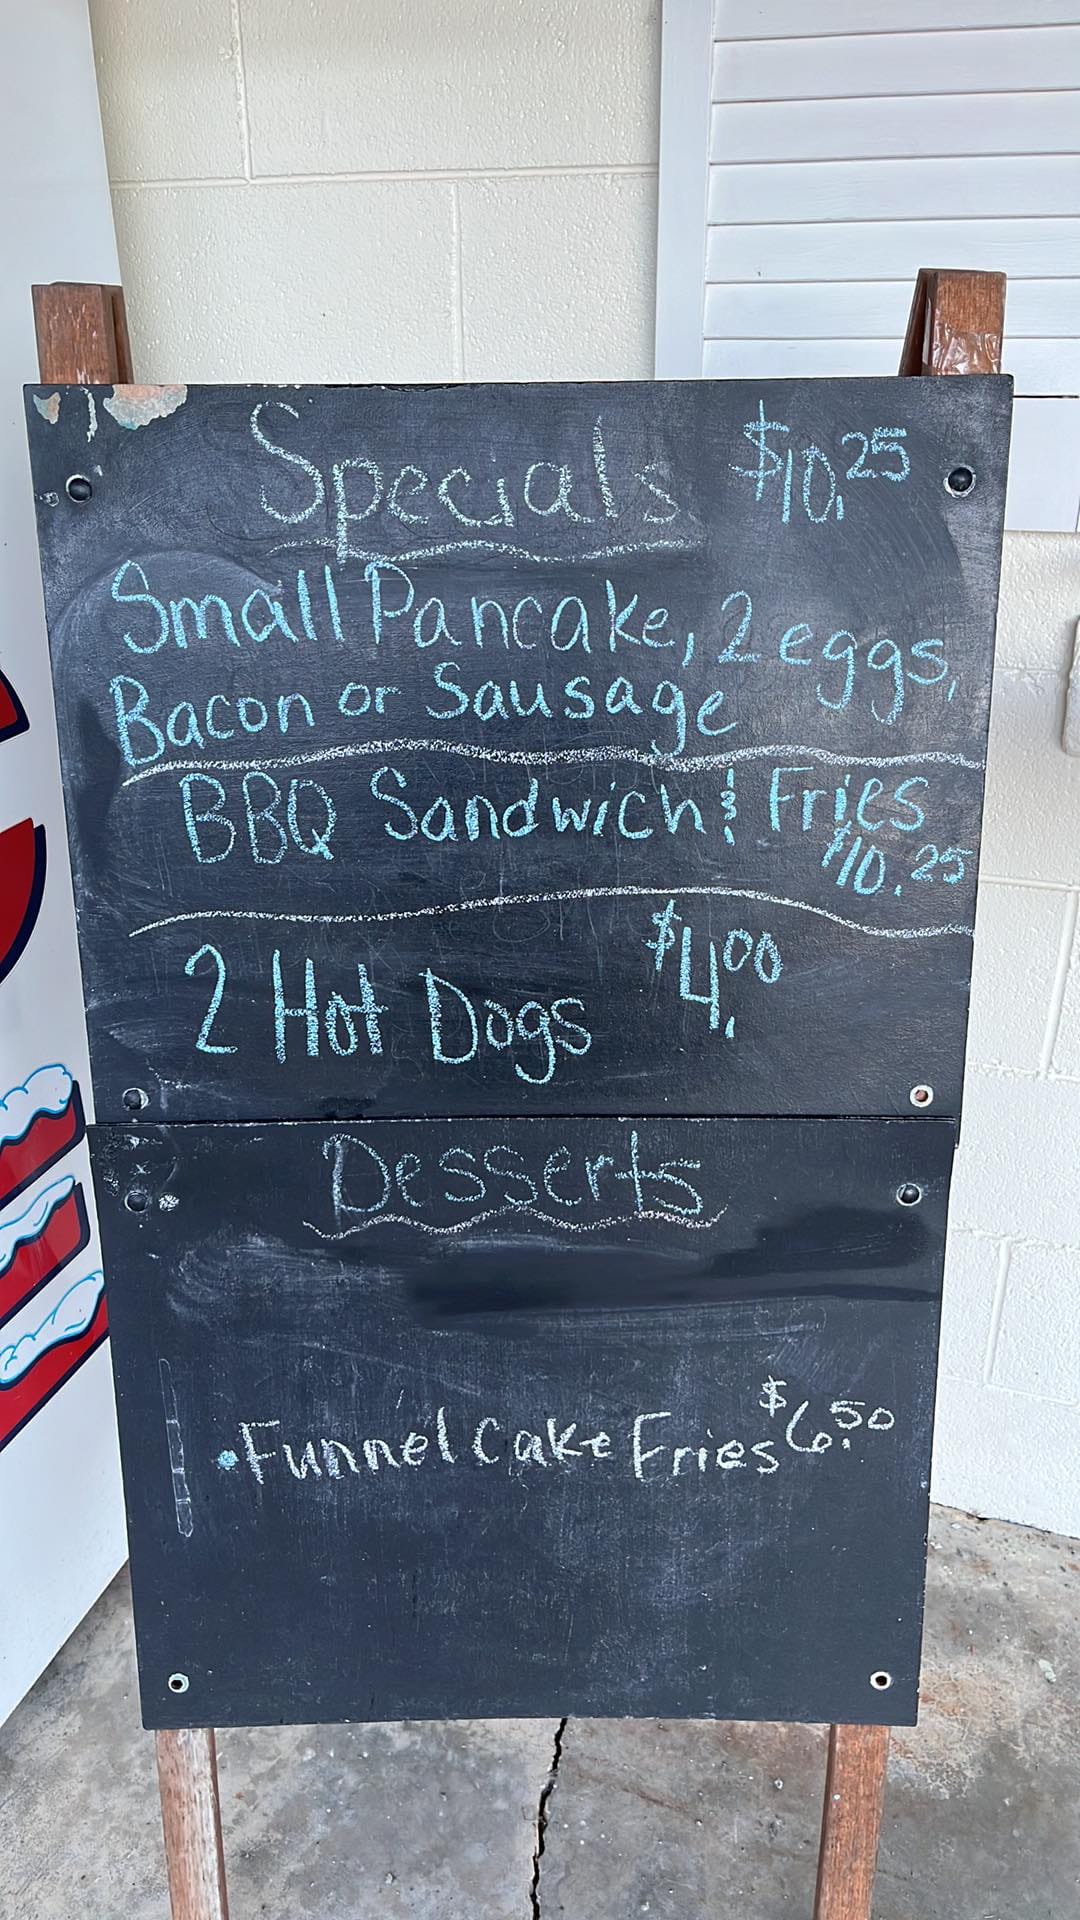 Specials $10.25
Small Pancake, 2 eggs,
Bacon or Sausage
BBQ Sandwich & Fries
$10.25
2 Hot Dogs $4.00
Desserts
•Funnel Cake Fries $6.50